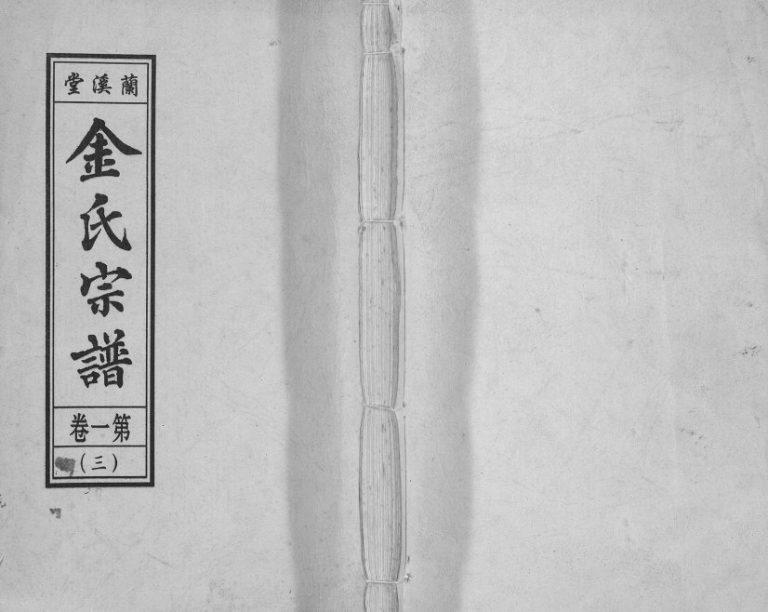 蘭溪堂
金氏宗譜
第一卷
（三）